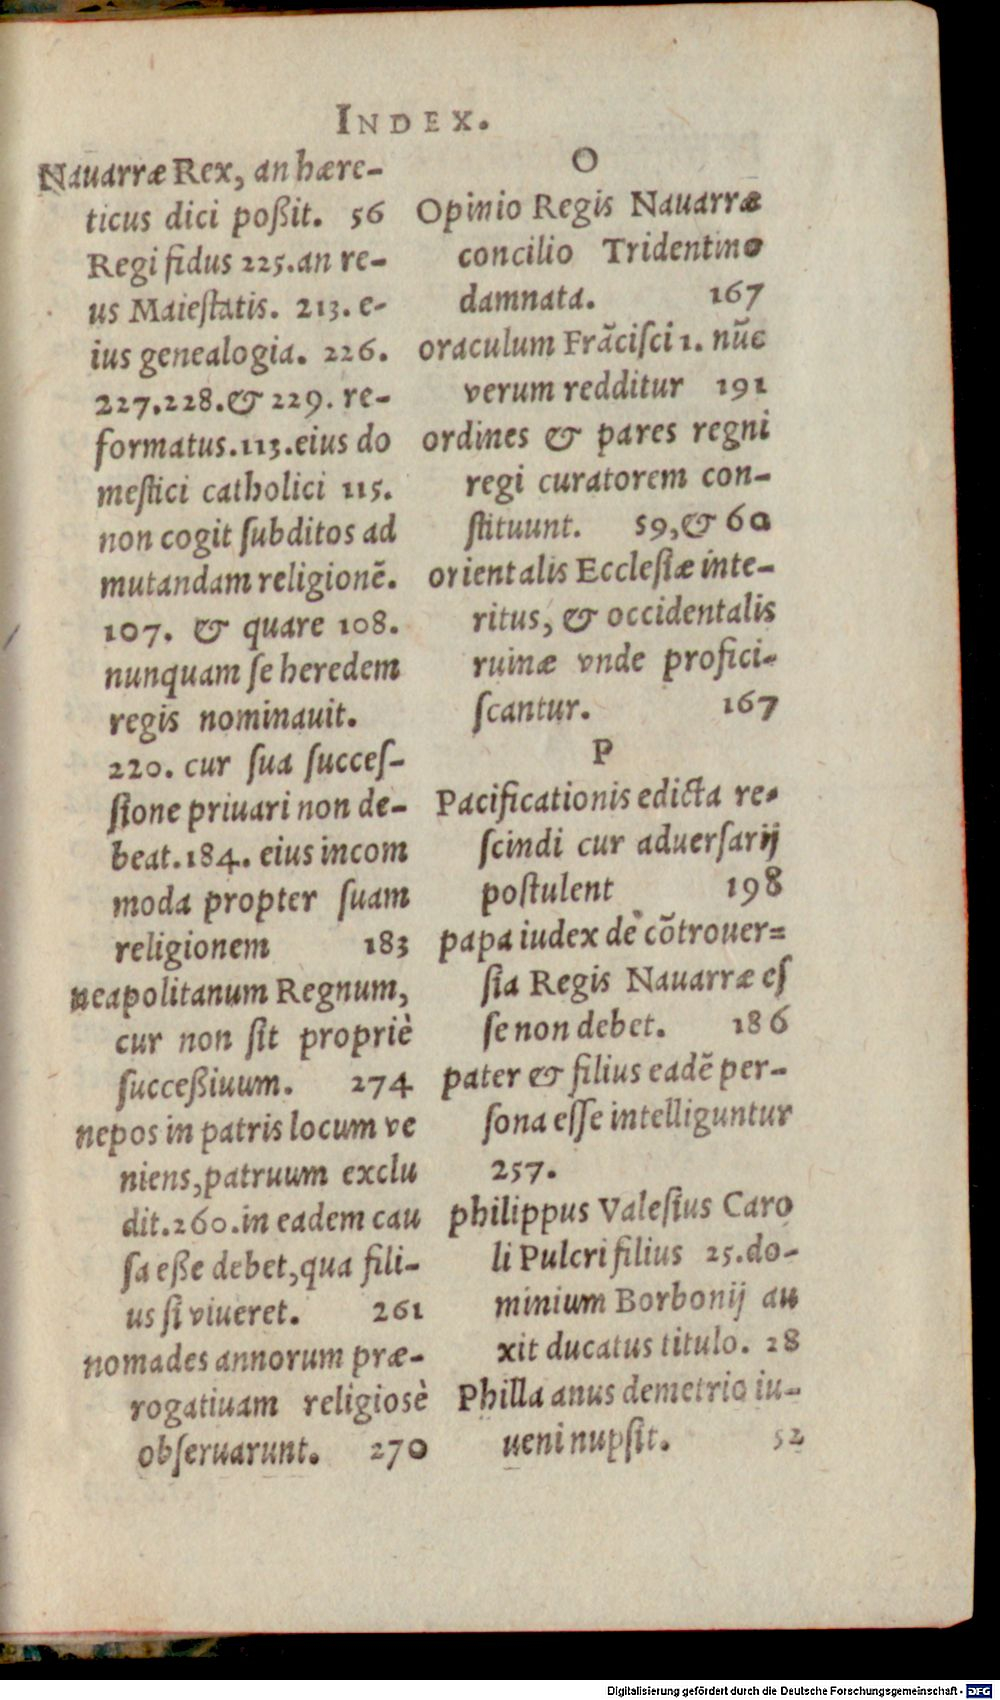 INDEX.
Nauarræ Rex, an hære-
ticus dici poßit. 56
Regi fidus 225. an re-
us Maieſtatis. 213. e-
ius genealogia. 226.
227. 228. & 229. re-
formatus. 113. eius do
meſtici catholici 115.
non cogit ſubditos ad
mutandam religionē.
107. & quare 108.
nunquam ſe heredem
regis nominauit.
220. cur ſua ſucceſ-
ſione priuari non de-
beat. 184. eius incom
moda propter ſuam
religionem 183
neapolitanum Regnum,
cur non ſit propriè
ſucceßiuum. 274
nepos in patris locum ve
niens, patruum exclu
dit. 260. in eadem cau
ſa eße debet, qua fili-
us ſi viueret. 261
nomades annorum præ-
rogatiuam religiosè
obſeruarunt. 270
O
Opinio Regis Nauarræ
concilio Tridentino
damnata. 167
oraculum Frāciſci 1. nūc
verum redditur 191
ordines & pares regni
regi curatorem con-
ſtituunt. 59, & 60
orientalis Eccleſiæ inte-
ritus, & occidentalis
ruinæ vnde profici-
ſcantur. 167
P
Pacificationis edicta re-
ſcindi cur aduerſarij
poſtulent 198
papa iudex de cōtrouer=
ſia Regis Nauarræ eſ
ſe non debet. 186
pater & filius eadē per-
ſona eſſe intelliguntur
257.
philippus Valeſius Caro
li Pulcri filius 25. do-
minium Borbonij au
xit ducatus titulo. 28
Philla anus demetrio iu-
ueni nupſit. 52
Digitalisierung gefördert durch die Deutsche Forschungsgemeinschaft - DFG